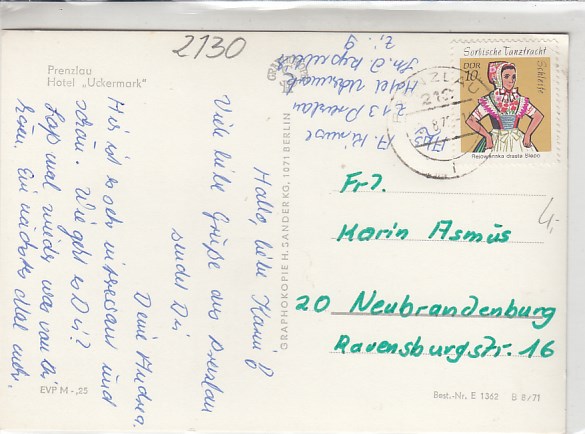 2130
Prenzlau
Hotel „Uckermark"
Hallo, liebe Karin!
Viele liebe Grüße aus Prenzlau
sendet Dir
Deine Andrea.
Hier ist es sehr interessant und
schön. Wie geht es Dir?
Laß mal wieder was von Dir
hören. Ein nächstes Mal mehr.
EVP M -,25
GRAPHOKOPIE H. SANDER KG, 1071 BERLIN
A.
213 Prenzlau
Hotel Uckermark
Z. 9
Sorbische Tanztracht
Schleife
DDR
10
Rejowanska drasta Slepo
Frl.
Karin Asmus
20 Neubrandenburg
Ravensburgstr. 16
4,-
Best.-Nr. E 1362 B 8/71